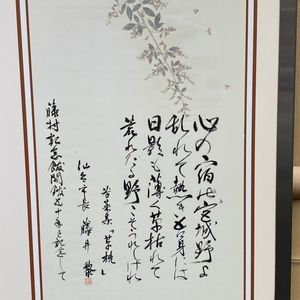 心の宿の宮城野よ
乱れて熱き吾身には
日影も薄く草枯れて
荒れたる野こそうれしけれ
若菜集「草枕」
仙台市長 藤井黎
藤村記念館開館五十年を記念して